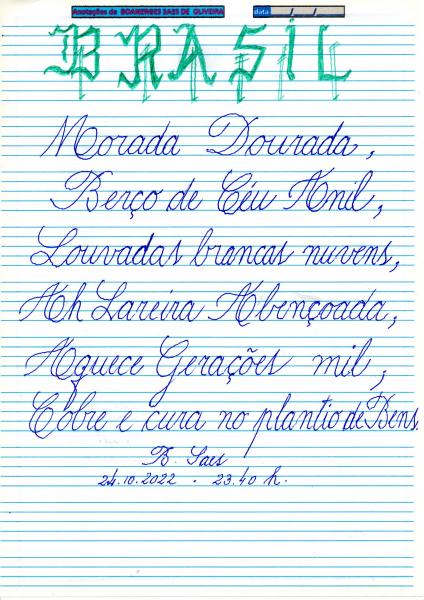 Anotações de BOANERGES SAES DE OLIVEIRA data / /
BRASIL
Morada Dourada,
Berço de Céu Anil,
Louvadas brancas nuvens,
Ah Lareira Abençoada,
Aquece Gerações mil,
Cobre e cura no plantio de Bens.
B. Saes
24.10.2022 . 23.40 h.